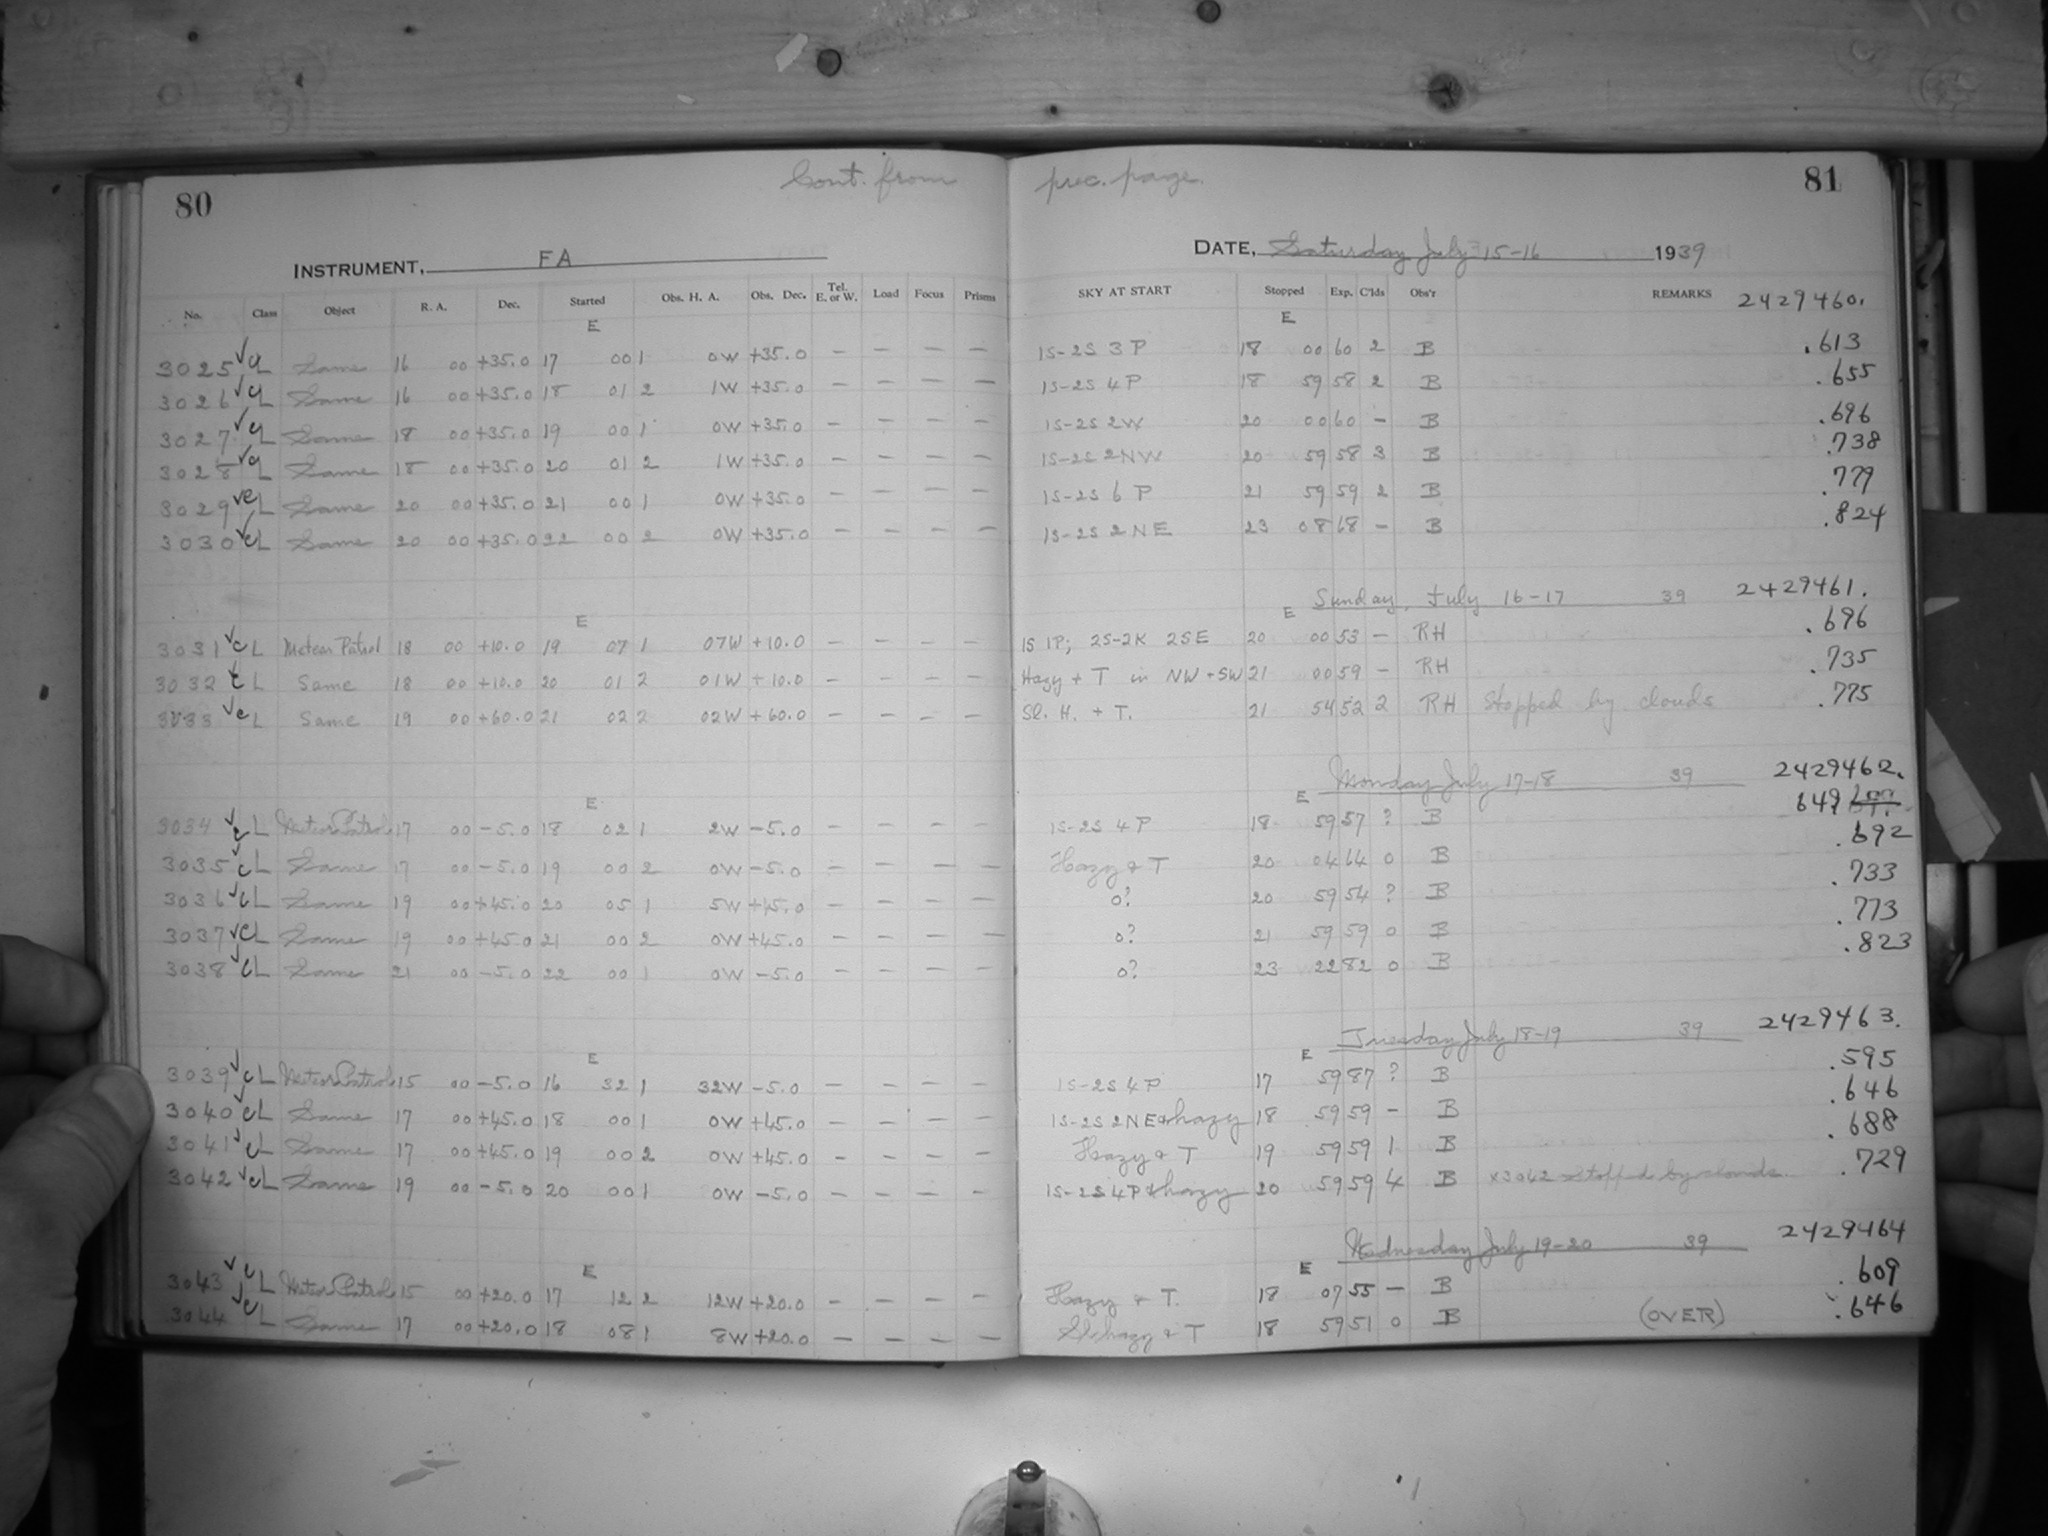 80 Cont. from prec. page. 81
INSTRUMENT, FA DATE, Saturday July 15-16 1939
No. Class Object R. A. Dec. Started Obs. H. A. Obs. Dec. Tel. E. or W. Load Focus Prisms SKY AT START Stopped Exp. C'lds Obs'r REMARKS 2429460.
E E
3025 ✓ CL Same 16 00 +35.0 17 00 1 0W +35.0 — — — — 1S-2S 3 P 18 00 60 2 B .613
3026 ✓ CL Same 16 00 +35.0 18 01 2 1W +35.0 — — — — 1S-2S 4 P 18 59 58 2 B .655
3027 ✓ CL Same 18 00 +35.0 19 00 1 0W +35.0 — — — — 1S-2S 2W 20 00 60 — B .696
3028 ✓ CL Same 18 00 +35.0 20 01 2 1W +35.0 — — — — 1S-2S 2NW 20 59 58 3 B .738
3029 ✓ CL Same 20 00 +35.0 21 00 1 0W +35.0 — — — — 1S-2S 6 P 21 59 59 2 B .779
3030 ✓ CL Same 20 00 +35.0 22 00 2 0W +35.0 — — — — 1S-2S 2 NE 23 08 68 — B .824
Sunday, July 16-17 39 2429461.
E E
3031 ✓ CL Meteor Patrol 18 00 +10.0 19 07 1 07W +10.0 — — — — 1S 1P; 2S-2K 2SE 20 00 53 — RH .696
3032 ✓ CL Same 18 00 +10.0 20 01 2 01W +10.0 — — — — Hazy + T in NW + SW 21 00 59 — RH .735
3033 ✓ CL Same 19 00 +60.0 21 02 2 02W +60.0 — — — — Sl. H. + T. 21 54 52 2 RH Stopped by clouds .775
Monday July 17-18 39 2429462.
E E
3034 ✓ CL Meteor Patrol 17 00 -5.0 18 02 1 2W -5.0 — — — — 1S-2S 4 P 18 59 57 ? B 649
3035 ✓ CL Same 17 00 -5.0 19 00 2 0W -5.0 — — — — Hazy & T 20 04 64 0 B .692
3036 ✓ CL Same 19 00 +45.0 20 05 1 5W +45.0 — — — — 0? 20 59 54 ? B .733
3037 ✓ CL Same 19 00 +45.0 21 00 2 0W +45.0 — — — — 0? 21 59 59 0 B .773
3038 ✓ CL Same 21 00 -5.0 22 00 1 0W -5.0 — — — — 0? 23 22 82 0 B .823
Tuesday July 18-19 39 2429463.
E E
3039 ✓ CL Meteor Patrol 15 00 -5.0 16 32 1 32W -5.0 — — — — 1S-2S 4 P 17 59 87 ? B .595
3040 ✓ CL Same 17 00 +45.0 18 00 1 0W +45.0 — — — — 1S-2S 2NE & hazy 18 59 59 — B .646
3041 ✓ CL Same 17 00 +45.0 19 00 2 0W +45.0 — — — — Hazy & T 19 59 59 1 B .688
3042 ✓ CL Same 19 00 -5.0 20 00 1 0W -5.0 — — — — 1S-2S 4P & hazy 20 59 59 4 B x3042 Stopped by clouds. .729
Wednesday July 19-20 39 2429464
E E
3043 ✓ CL Meteor Patrol 15 00 +20.0 17 12 2 12W +20.0 — — — — Hazy & T. 18 07 55 — B .609
3044 ✓ CL Same 17 00 +20.0 18 08 1 8W +20.0 — — — — Sl. hazy & T 18 59 51 0 B (OVER) .646